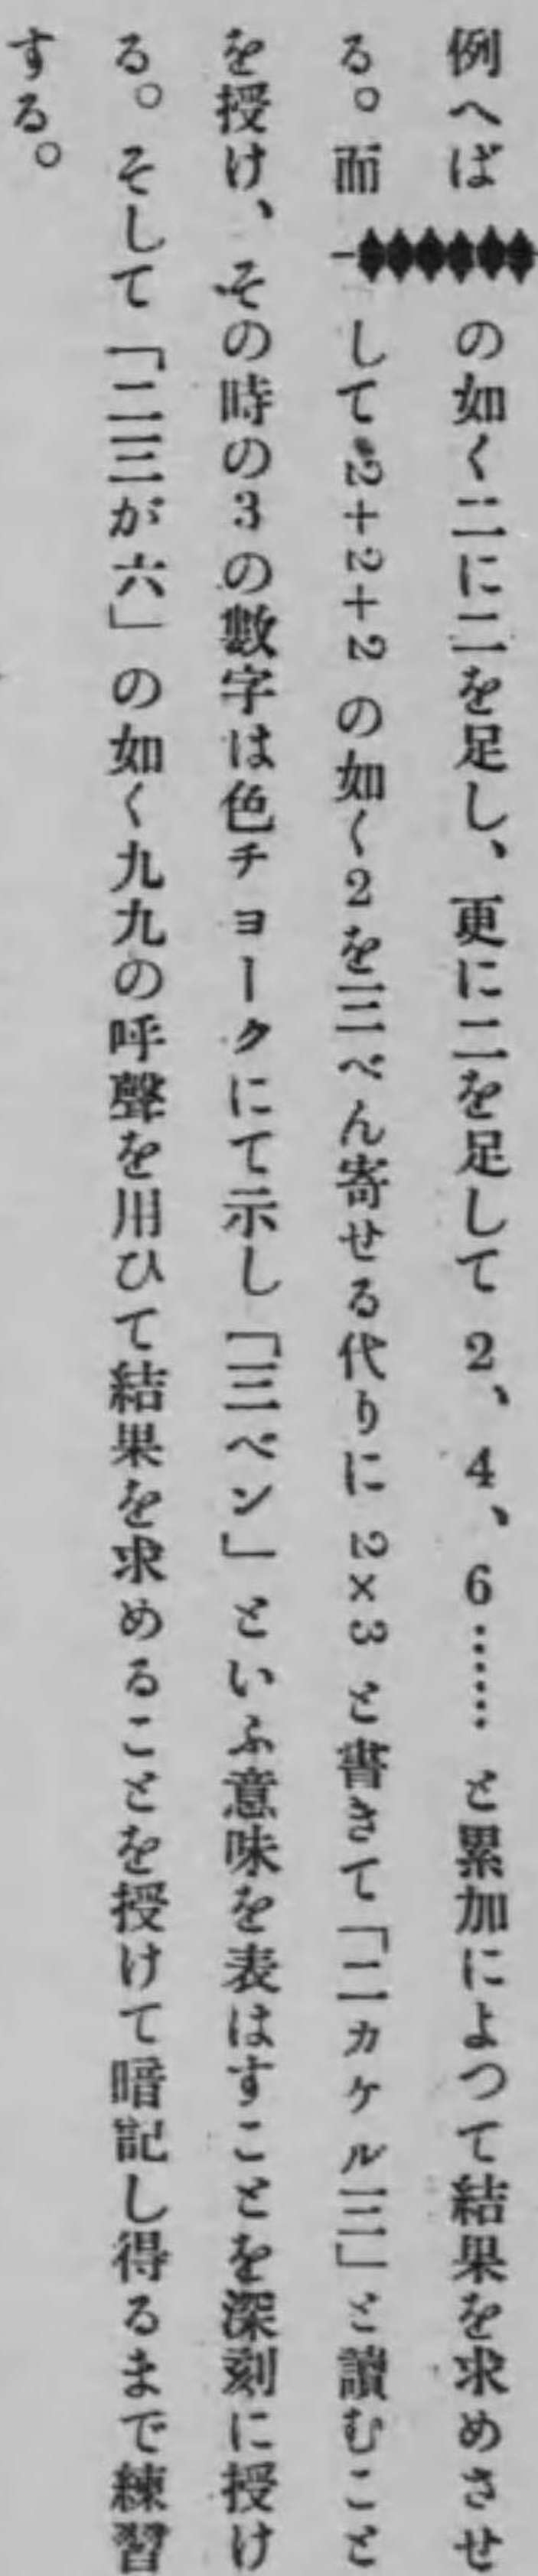 例へば の如く二に二を足し、更に二を足して 2、4、6…… と累加によつて結果を求めさせ
る。而 して 2+2+2 の如く2を三べん寄せる代りに 2×3 と書きて「二カケル三」と讀むこと
を授け、その時の3の數字は色チョークにて示し「三ベン」といふ意味を表はすことを深刻に授け
る。そして「二三が六」の如く九九の呼聲を用ひて結果を求めることを授けて暗記し得るまで練習
する。